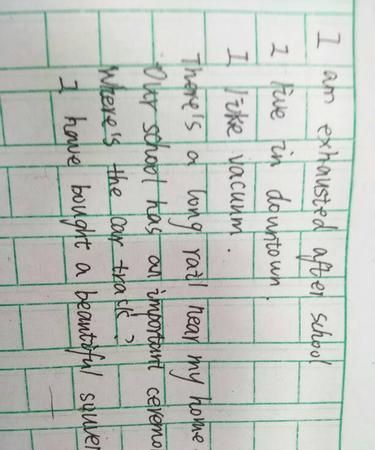 I am exhausted after school
I live in downtown.
I like vacuum.
There's a long rail near my home
Our school has an important ceremo
Where's the car track?
I have bought a beautiful